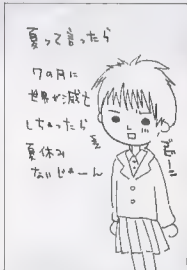 夏って言ったら
7の月に
世界が滅亡
しちゃったら
夏休み
ないじゃーん